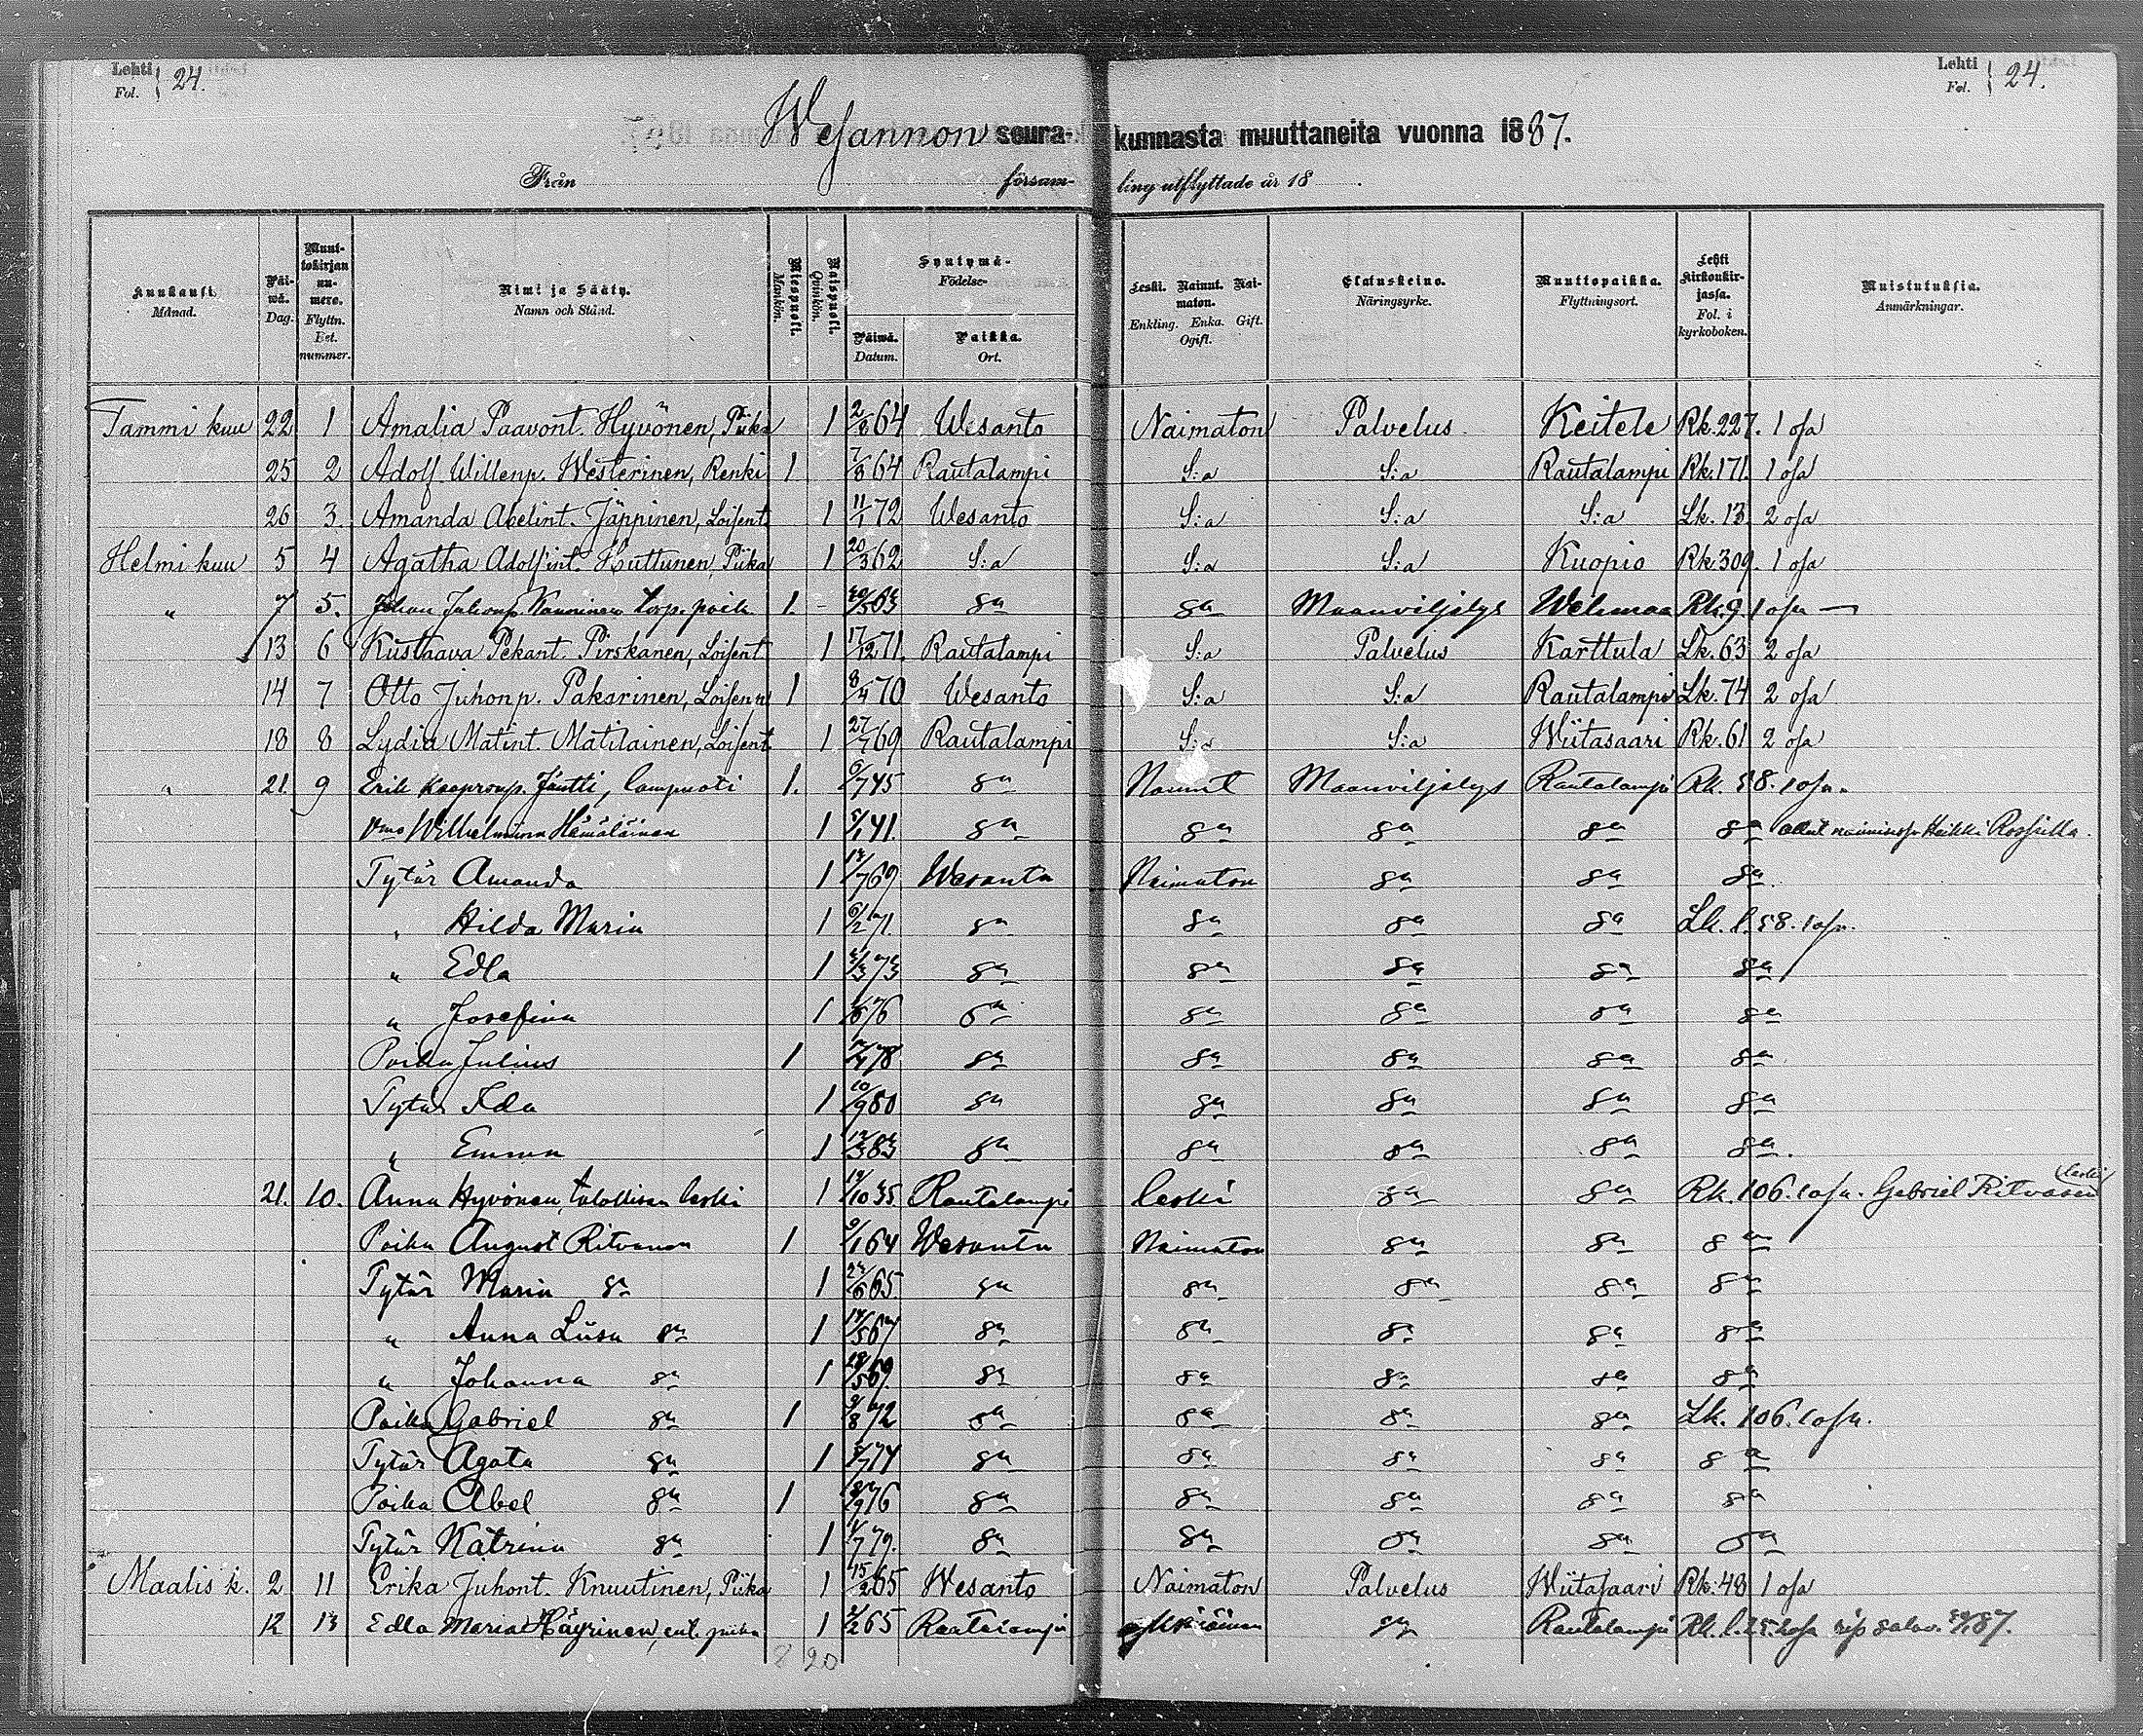 Lehti Fol. } 24.
Lehti Fol. } 24.
Wesannon seura- kunnasta muuttaneita vuonna 1887.
Från försam- ling utflyttade år 18 .
Kuukausi. Månad.
Päi- wä. Dag.
Muut- tokirjan nu- mero. Flyttn. Bet. nummer.
Nimi ja Sääty. Namn och Stånd.
Miespuoli. Mankön.
Naispuoli. Qvinkön.
Syntymä- Födelse-
Päiwä. Datum.
Paikka. Ort.
Leski. Nainut. Nai- maton. Enkling. Enka. Gift. Ogift.
Elatuskeino. Näringsyrke.
Muuttopaikka. Flyttningsort.
Lehti kirkonkir- jassa. Fol. i kyrkoboken.
Muistutuksia. Anmärkningar.
Tammi kuu 22 1 Amalia Paavont. Hyvönen, Piika 1 2/8 64 Wesanto Naimaton Palvelus Keitele Rk. 227. 1 osa
25 2 Adolf Willenp. Westerinen, Renki 1 7/8 64 Rautalampi S:a S:a Rautalampi Rk. 171. 1 osa
26 3. Amanda Abelint. Jäppinen, Loisent. 1 11/1 72 Wesanto S:a S:a S:a Lk. 13 2 osa
Helmi kuu 5 4 Agatha Adolfint. Huttunen, Piika 1 20/3 62 S:a S:a S:a Kuopio Rk. 309. 1 osa
" 7 5. Johan Juhonp. torp. poik 1. 63 sa sa Maanviljelys Wehmaa Rk. 9. 1 osa
13 6 Kustaava Pekant. Pirskanen, Loisent 1 17/12 71. Rautalampi S:a Palvelus Karttula Lk. 63 2 osa
14 7 Otto Juhonp. Pakarinen, Loisenp. 1 8/4 70 Wesanto S:a S:a Rautalampi Lk. 74 2 osa
18 8 Lydia Matint. Matilainen, Loisent. 1 27/7 69 Rautalampi S:a S:a Wiitasaari Rk. 61 2 osa
" 21. 9 Erik Kaspronp. Jäntti, lampuoti 1. 6/7 45 sa Nainut Maanviljelys Rautalampi Rk. 58. 1 osa.
Vmo Wilhelmiina Hämäläinen 1 5/1 41. sa sa sa sa sa ollut naimisissa Heikki
Tytär Amanda 1 /7 69 Wesanto Naimaton sa sa sa
" Hilda Maria 1 6/2 71 sa sa sa sa Lk. l. 58. 1 osa.
" Edla 1 /3 73 sa sa sa sa sa
" Josefina 1 76 sa sa sa sa sa
Poika Julius 1 78 sa sa sa sa sa
Tytär Ida 1 10/9 80 sa sa sa sa sa
" Emma 1 12/3 83 sa sa sa sa sa.
21. 10. Anna Hyvönen, talollisen leski 1 /10 35. Rautalampi leski sa sa Rk. 106. 1 osa. Gabriel Ritvasen leski
Poika August Ritvanen 1 9/1 64 Wesanto Naimaton sa sa sa
Tytär Maria sa 1 /6 65. sa sa sa sa sa
" Anna Liisa sa 1 14/5 67 sa sa sa sa sa
" Johanna sa 1 /5 69. sa sa sa sa sa
Poika Gabriel sa 1 9/8 72 sa sa sa sa Lk. 106. 1 osa.
Tytär Agata sa 1 /7 74 sa sa sa sa sa
Poika Abel sa 1 /9 76 sa sa sa sa sa
Tytär Katrina sa 1 /7 79. sa sa sa sa sa
Maalis k. 2 11 Erika Juhont. Knuutinen, Piika 1 15/2 65 Wesanto Naimaton Palvelus Wiitasaari Rk. 48 1 osa
12 Edla Maria Häyrinen, ent. piika 1 /2 65 Rautalampi sa Rautalampi Rk. l. 87.
8 20